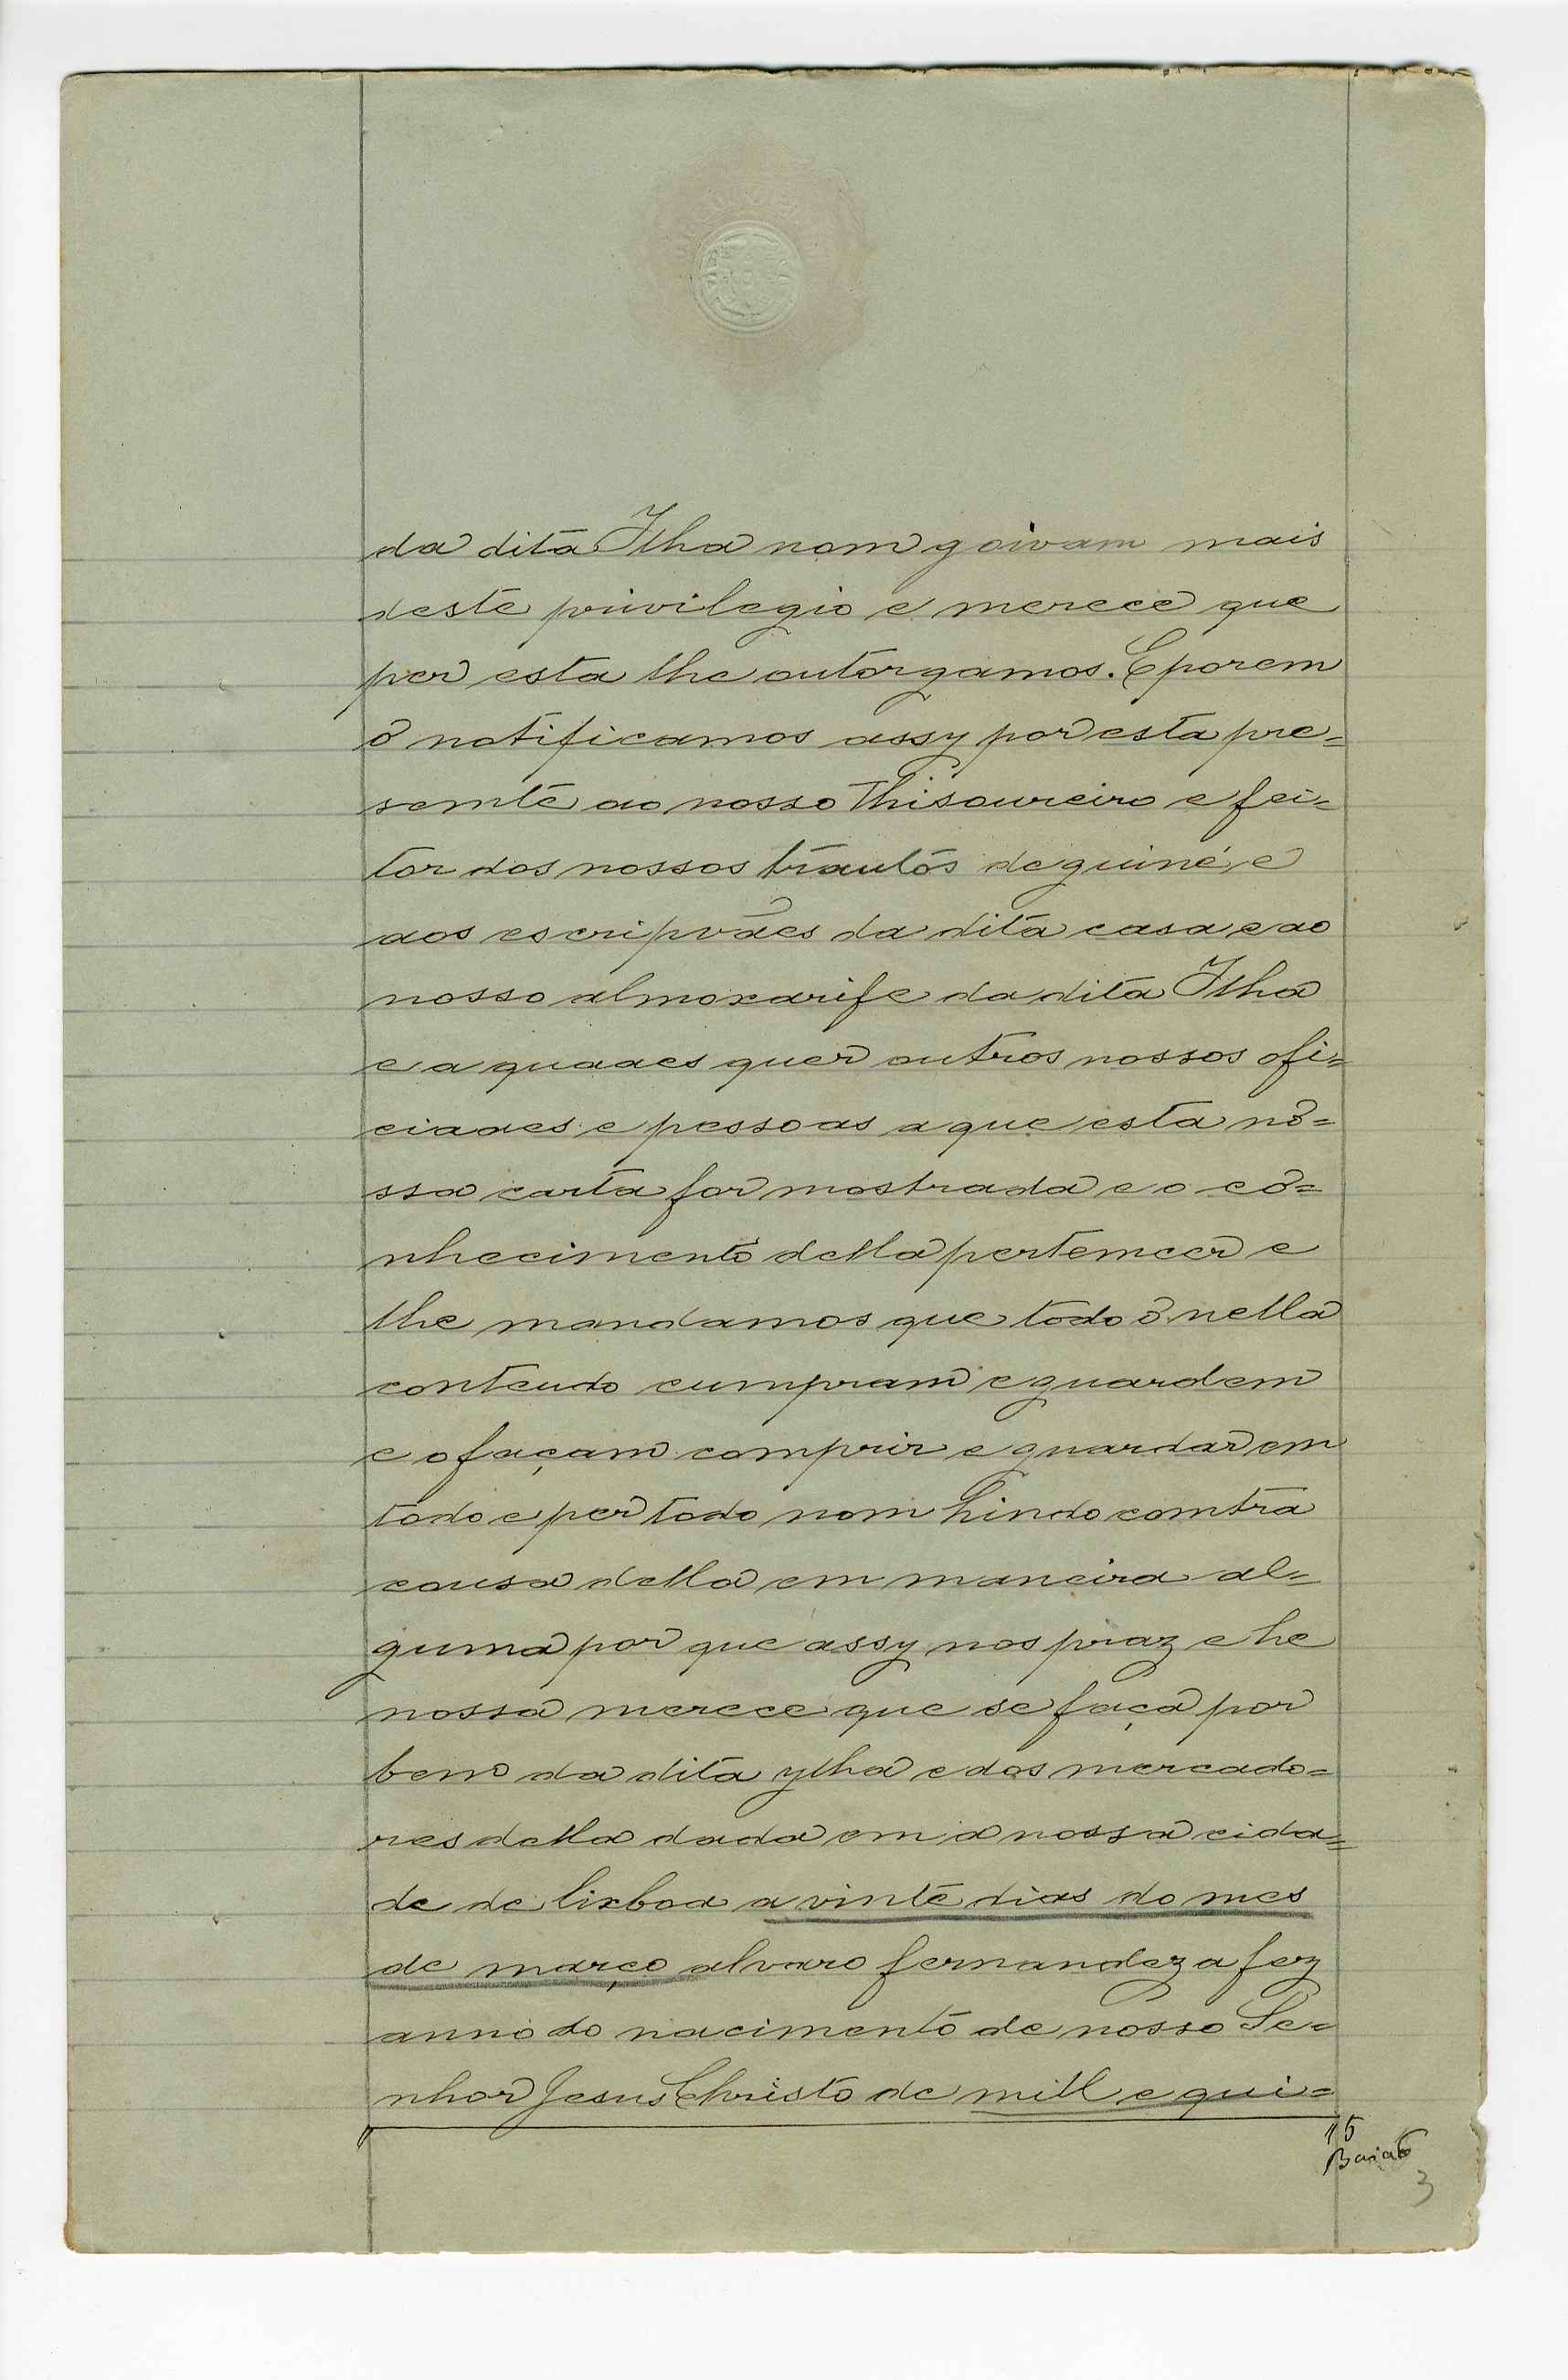 da dita Ilha nom goivam mais
deste privilegio e merece que
per esta lhe outorgamos. E porem
o notificamos assy por esta pre=
semte ao nosso Thisoureiro e fei=
tor dos nossos trautos de guiné e
aos escripvães da dita casa e ao
nosso almoxarife da dita Ilha
e a quaaes quer outros nossos ofi=
ciaaes e pessoas a que esta no=
ssa carta for mostrada e o co=
nhecimento della pertemcer e
lhe mandamos que todo o nella
conteudo cumpram e guardem
e o façam comprir e guardar em
todo e per todo nom hindo comtra
cousa della em maneira al=
guma por que assy nos praz e he
nossa merece que se faça por
bem da dita ylha e dos mercado=
res della dada em a nossa cida=
de de lixboa a vinte dias do mes
de março alvaro fernandez a fez
anno do nacimento de nosso Se=
nhor Jesus Christo de mill e qui=
15
Baião
3